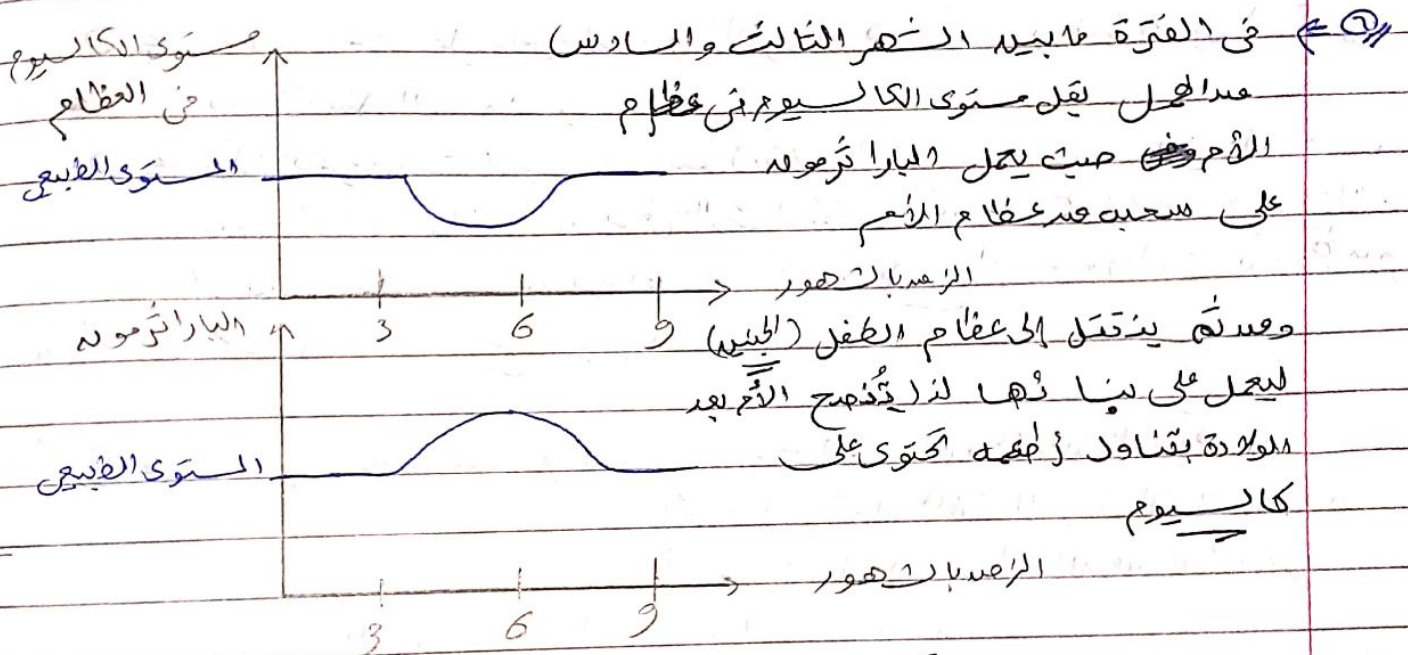 ٦ ← فى الفترة ما بين الشهر الثالث والسادس
من الحمل يقل مستوى الكالسيوم فى عظام
الأم حيث يعمل الباراثرمون
على سحبه من عظام الأم
ومن ثم ينتقل إلى عظام الطفل (الجنين)
ليعمل على بنائها لذا تُنصح الأم بعد
الولادة بتناول أطعمه تحتوى على
كالسيوم
مستوى الكالسيوم
فى العظام
المستوى الطبيعى
3 6 9
الزمن بالشهور
الباراثرمون
المستوى الطبيعى
3 6 9
الزمن بالشهور